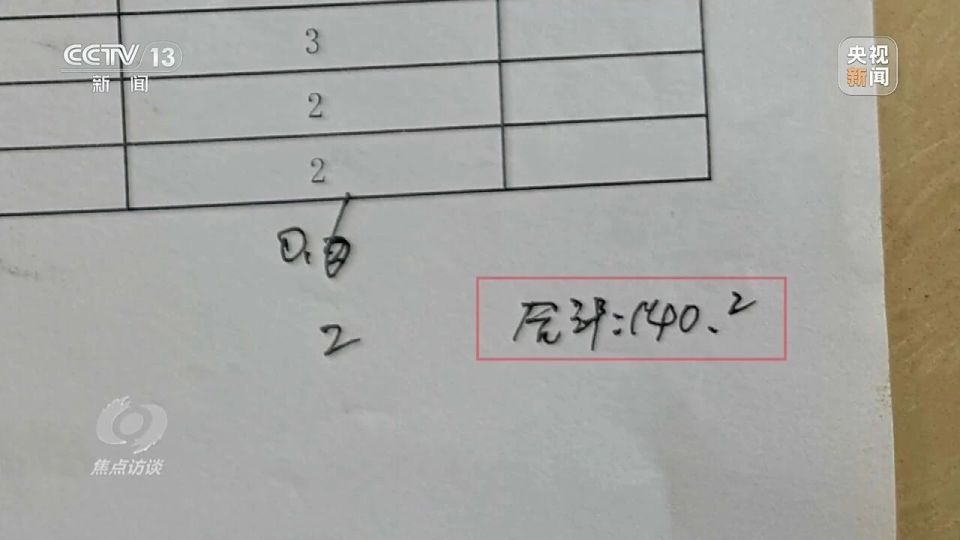 CCTV 13
新闻
央视
新闻
3
2
2
0.
2
合计:140.2
焦点访谈